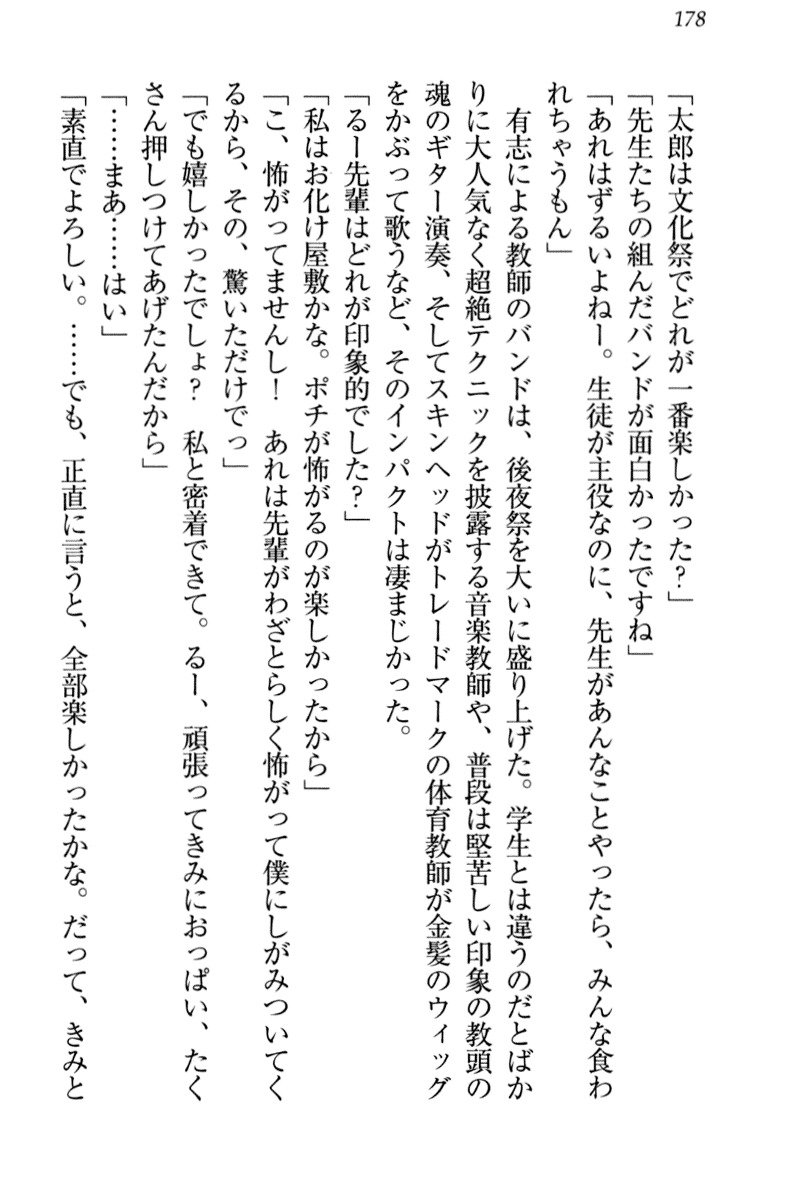 178
「太郎は文化祭でどれが一番楽しかった？」
「先生たちの組んだバンドが面白かったですね」
「あれはずるいよねー。生徒が主役なのに、先生があんなことやったら、みんな食わ
れちゃうもん」
　有志による教師のバンドは、後夜祭を大いに盛り上げた。学生とは違うのだとばか
りに大人気なく超絶テクニックを披露する音楽教師や、普段は堅苦しい印象の教頭の
魂のギター演奏、そしてスキンヘッドがトレードマークの体育教師が金髪のウィッグ
をかぶって歌うなど、そのインパクトは凄まじかった。
「るー先輩はどれが印象的でした？」
「私はお化け屋敷かな。ポチが怖がるのが楽しかったから」
「こ、怖がってませんし！　あれは先輩がわざとらしく怖がって僕にしがみついてく
るから、その、驚いただけでっ」
「でも嬉しかったでしょ？　私と密着できて。るー、頑張ってきみにおっぱい、たく
さん押しつけてあげたんだから」
「……まあ……はい」
「素直でよろしい。……でも、正直に言うと、全部楽しかったかな。だって、きみと